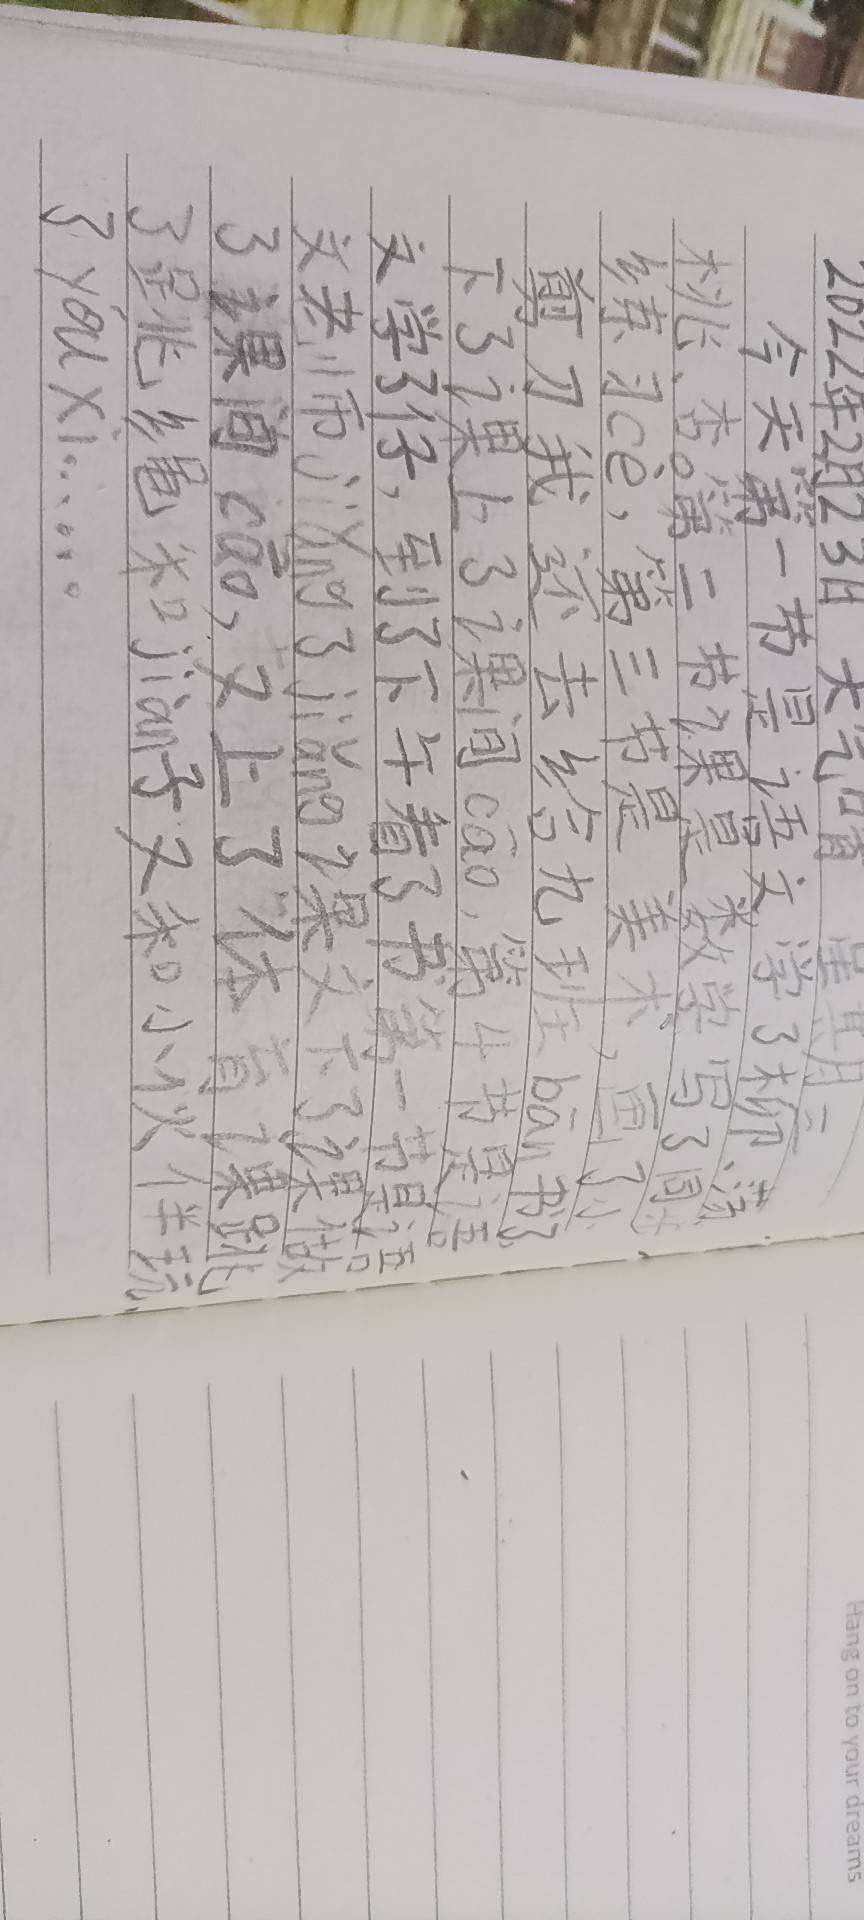 2022年2月23日 天气晴 星其月三
今天第一书是语文学了柳、荡
桃、杏。第二书课是数学写了同步
练习cè,第三书是美术,画了小
剪刀我还去给九班bān书了
下了课上了课间cāo,第4书是语
文学了仔,到了下午看了书第一书是语
文老师jiǎng了jiǎng课文下了课做
了课间cāo,又上了体育课跳
了是兆绳和jiàn子又和小伙伴玩
了yóu xì......
Hang on to your dreams